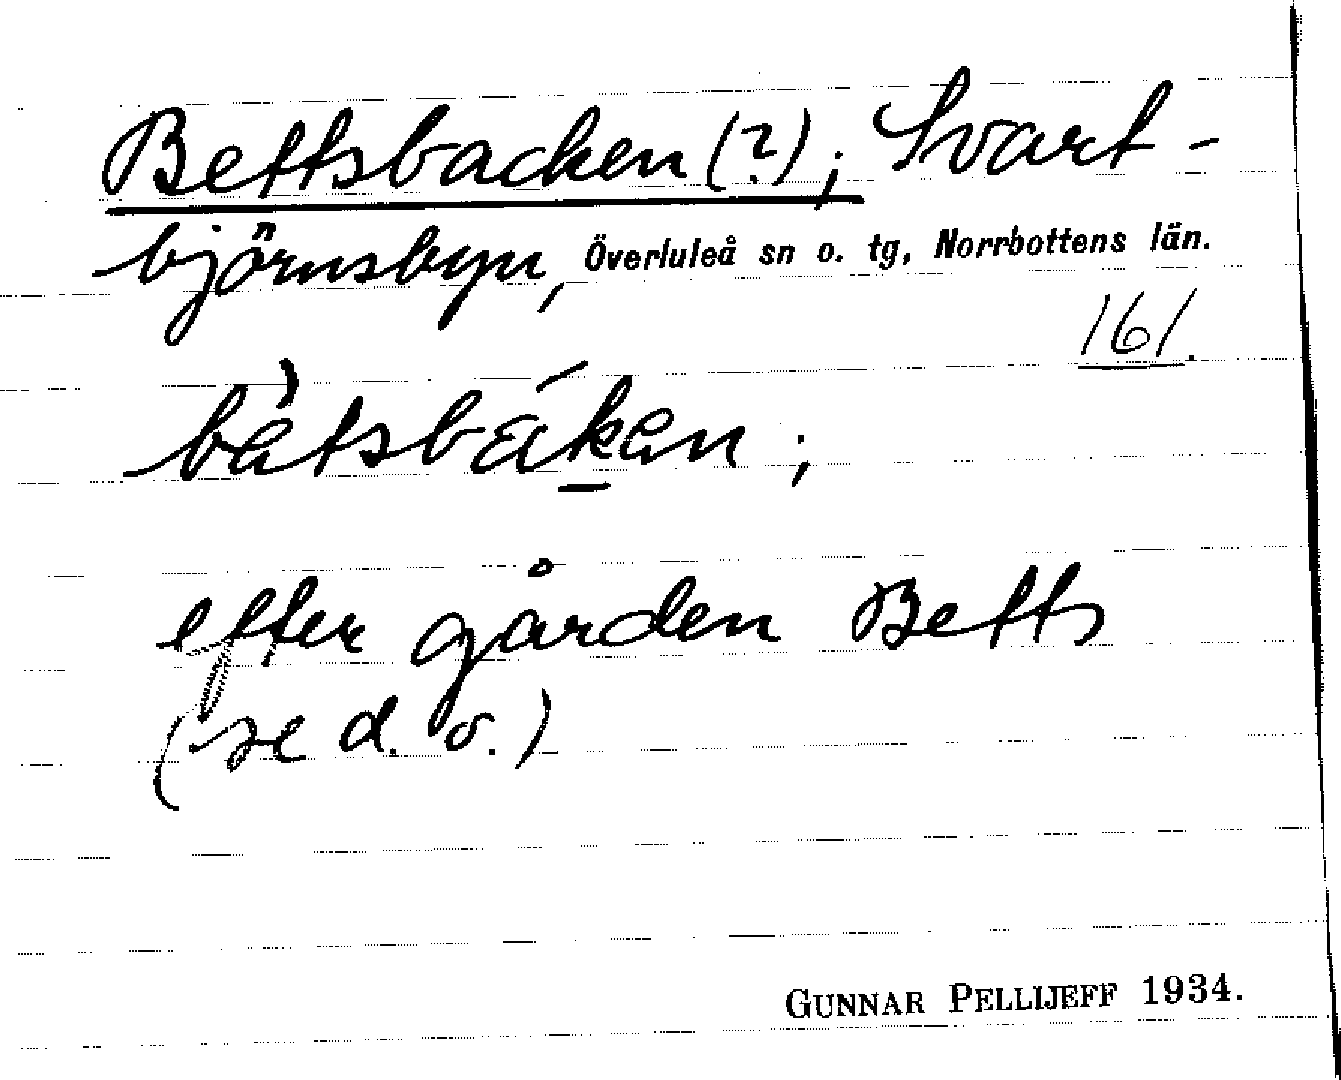 Bettsbacken (?); Svart-
björnsbyn, Överluleå sn o. tg, Norrbottens län.
161.
bètsbákan ;
efter gården Betts
(se d. o.)
GUNNAR PELLIJEFF 1934.